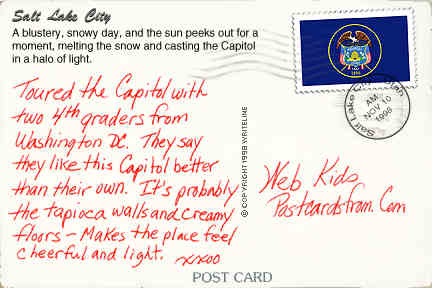 Salt Lake City
A blustery, snowy day, and the sun peeks out for a
moment, melting the snow and casting the Capitol
in a halo of light.
Toured the Capitol with
two 4th graders from
Washington DC. They say
they like this Capitol better
than their own. It's probably
the tapioca walls and creamy
floors - Makes the place feel
cheerful and light. xxoo
© COPYRIGHT 1998 WRITELINE
Salt Lake City Utah
AM
NOV 10
1998
Web Kids
Postcardsfrom.Com
POST CARD